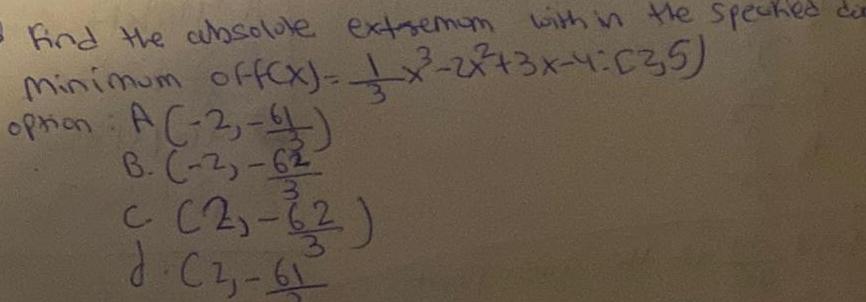 Find the absolute extremum with in the specified do
minimum of f(x)= 1/3 x³-2x²+3x-4: [2,5)
option: A (-2, -61/3)
B. (-2, -62/3
C (2, -62/3)
d. (2, -61